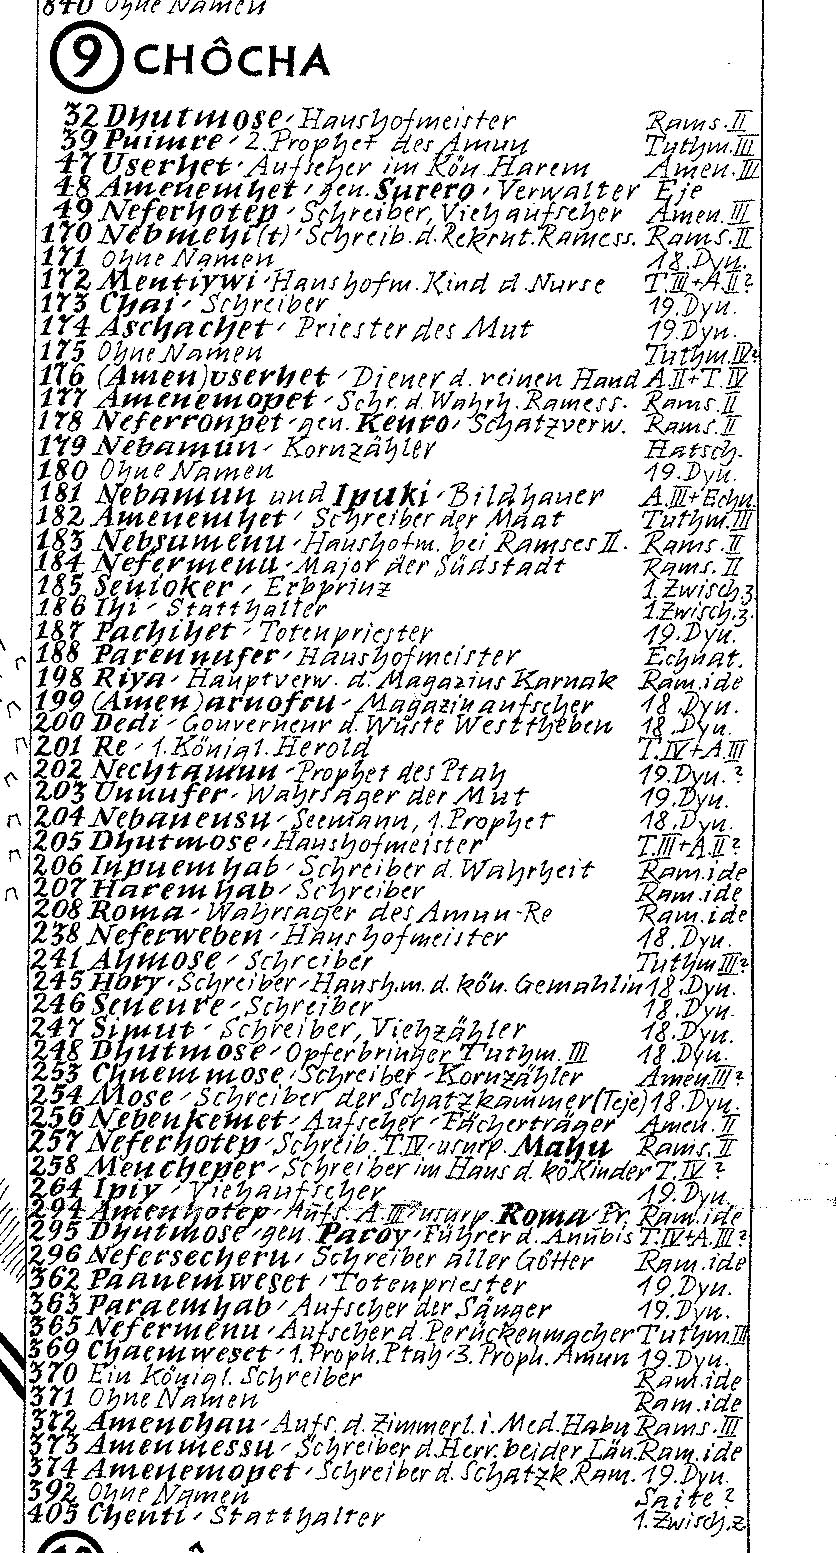 840 Ohne Namen
9 CHÔCHA
32 Dhutmose, Haushofmeister Rams. II
39 Puimre, 2. Prophet des Amun Tuthm. III
47 Userhet, Aufseher im Kön. Harem Amen. III
48 Amenemhet, gen. Surero, Verwalter Eje
49 Neferhotep, Schreiber, Viehaufseher Amen. III
170 Nebmehi(t), Schreib. d. Rekrut. Ramess. Rams. II
171 Ohne Namen 18. Dyn.
172 Mentiywi, Haushofm. Kind d. Nurse T. III + A. II?
173 Chai, Schreiber 19. Dyn.
174 Aschachet, Priester des Mut 19. Dyn.
175 Ohne Namen Tuthm. IV?
176 (Amen)userhet, Diener d. reinen Hand A II + T. IV
177 Amenemopet, Schr. d. Wahrh. Ramess. Rams. II
178 Neferronpet, gen. Kenro, Schatzverw. Rams. II
179 Nebamun, Kornzähler Hatsch.
180 Ohne Namen 19. Dyn.
181 Nebamun und Ipuki, Bildhauer A. III + Echn.
182 Amenemhet, Schreiber der Maat Tuthm. III
183 Nebsumenu, Haushofm. bei Ramses II. Rams. II
184 Nefermenu, Major der Südstadt Rams. II
185 Senioker, Erbprinz 1. Zwisch. z.
186 Ihi, Statthalter 1. Zwisch. z.
187 Pachihet, Totenpriester 19. Dyn.
188 Parennufer, Haushofmeister Echnat.
198 Riya, Hauptverw. d. Magazins Karnak Ram.ide
199 (Amen)arnofru, Magazinaufseher 18. Dyn.
200 Dedi, Gouverneur d. Wüste Westtheben 18. Dyn.
201 Re, 1. Königl. Herold T. IV + A. III
202 Nechtamun, Prophet des Ptah 19. Dyn. ?
203 Unnufer, Wahrsager der Mut 19. Dyn.
204 Nebanensu, Seemann, 1. Prophet 18. Dyn.
205 Dhutmose, Haushofmeister T. III + A. II?
206 Inpuemhab, Schreiber d. Wahrheit Ram.ide
207 Haremhab, Schreiber Ram.ide
208 Roma, Wahrsager des Amun-Re Ram.ide
238 Neferweben, Haushofmeister 18. Dyn.
241 Ahmose, Schreiber Tuthm III?
245 Hory, Schreiber, Haush.m. d. kön. Gemahlin 18. Dyn.
246 Senenre, Schreiber 18. Dyn.
247 Simut, Schreiber, Viehzähler 18. Dyn.
248 Dhutmose, Opferbringer Tuthm. III 18. Dyn.
253 Chnemmose, Schreiber, Kornzähler Amen. III?
254 Mose, Schreiber der Schatzkammer (Teje) 18. Dyn.
256 Nebenkemet, Aufseher, Fächerträger Amen. II
257 Neferhotep, Schreib. T. IV, usurp. Mahu Rams. II
258 Mencheper, Schreiber im Haus d. kö Kinder T. IV ?
264 Ipiy, Viehaufseher 19. Dyn.
294 Amenhotep, Aufs. A III, usurp. Roma, Pr. Ram.ide
295 Dhutmose, gen. Paroy, Führer d. Anubis T. IV + A. III?
296 Nefersecheru, Schreiber aller Götter Ram.ide
362 Paanemweset, Totenpriester 19. Dyn.
363 Paraemhab, Aufseher der Sänger 19. Dyn.
365 Nefermenu, Aufseher d. Perückenmacher Tuthm. III
369 Chaemweset, 1. Proph. Ptah, 3. Proph. Amun 19. Dyn.
370 Ein Königl. Schreiber Ram.ide
371 Ohne Namen Ram.ide
372 Amenchau, Aufs. d. Zimmerl. i. Med. Habu Rams. III
373 Amenmessu, Schreiber d. Herr. beider Län. Ram.ide
374 Amenemopet, Schreiber d. Schatzk. Ram. 19. Dyn.
392 Ohne Namen Saite ?
405 Chenti, Statthalter 1. Zwisch. z.